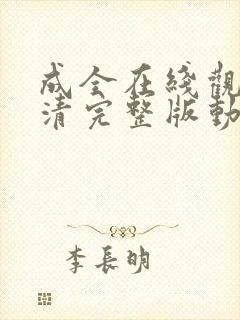 成全在綫觀
清完整版動
李長明